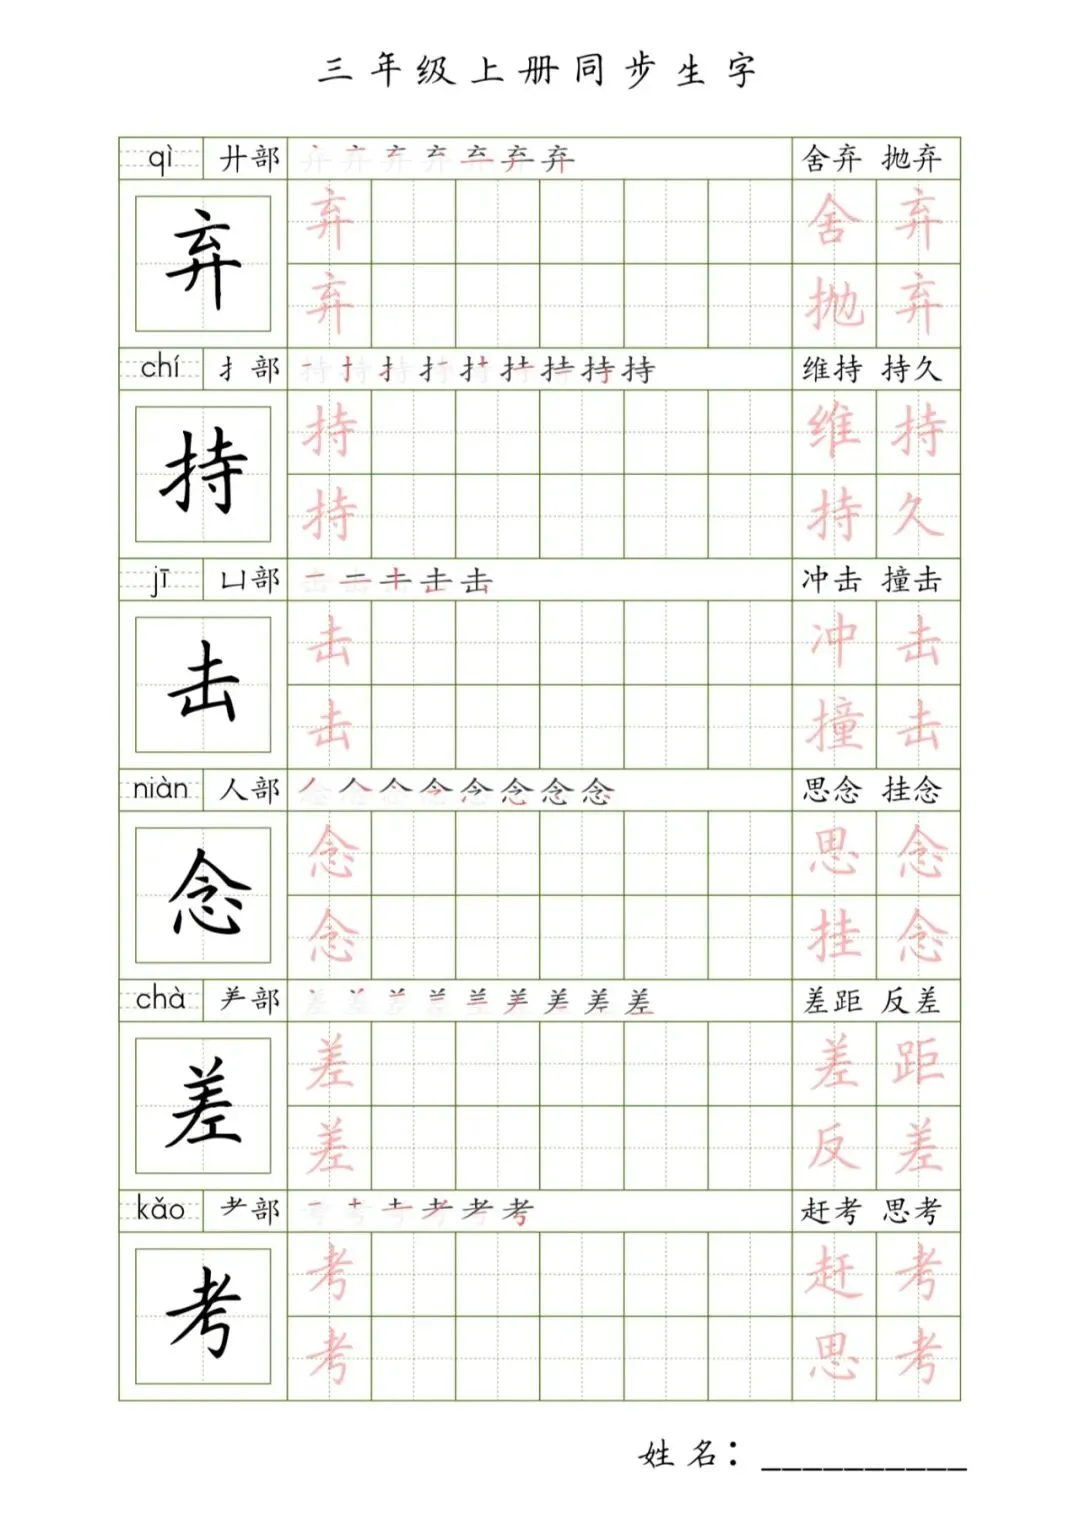 三年级上册同步生字
qì 廾部 弃弃弃弃弃弃弃 舍弃 抛弃
弃 弃 舍弃
弃 抛弃
chí 扌部 持持持持持持持持持 维持 持久
持 持 维持
持 持久
jī 凵部 一二キ击击 冲击 撞击
击 击 冲击
击 撞击
niàn 人部 念念念念念念念念 思念 挂念
念 念 思念
念 挂念
chà ⺶部 差差差差差差差差差 差距 反差
差 差 差距
差 反差
kǎo 耂部 考考考考考考 赶考 思考
考 考 赶考
考 思考
姓名：__________